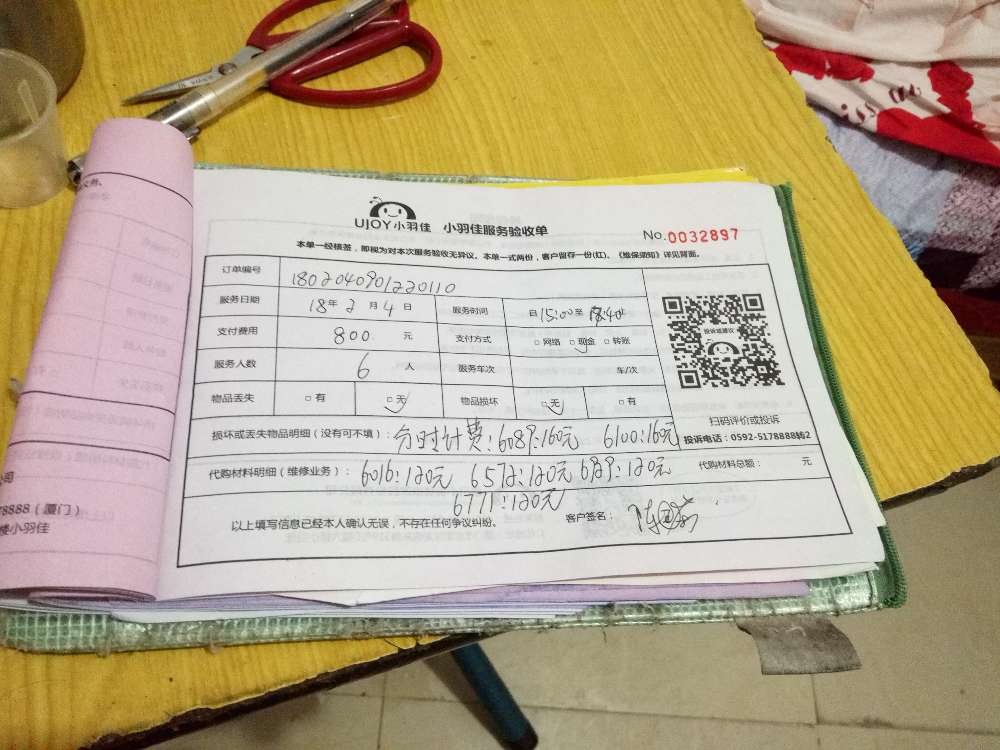 UJOY小羽佳 小羽佳服务验收单
No.0032897
本单一经核签，即视为对本次服务验收无异议。本单一式两份，客户留存一份(红)。《维保须知》详见背面。
订单编号 1802040901220110
服务日期 18年2月4日 服务时间 自15:00至
支付费用 800 元 支付方式 □网络 □现金 □转账
服务人数 6 人 服务车次 车/次
物品丢失 □有 □无 物品损坏 □无 □有
投诉或建议
扫码评价或投诉
投诉电话：0592-5178888转2
损坏或丢失物品明细（没有可不填）：分时计费：6089：160元 6100：160元
代购材料明细（维修业务）：6016：120元 6572：120元 6929：120元 代购材料总额： 元
6771：120元
以上填写信息已经本人确认无误，不存在任何争议纠纷。 客户签名：
公司
78888（厦门）
楼小羽佳